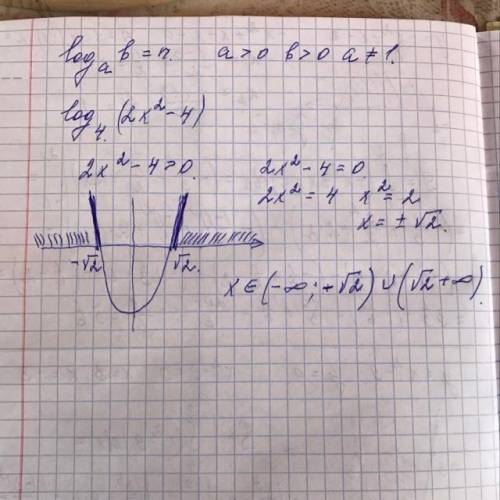 log_a b = n. a > 0 b > 0 a ≠ 1.
log_4. (2x² - 4)
2x² - 4 > 0. 2x² - 4 = 0.
2x² = 4 x² = 2
x = ± √2.
-√2 √2.
x ∈ (-∞; -√2) ∪ (√2 + ∞).